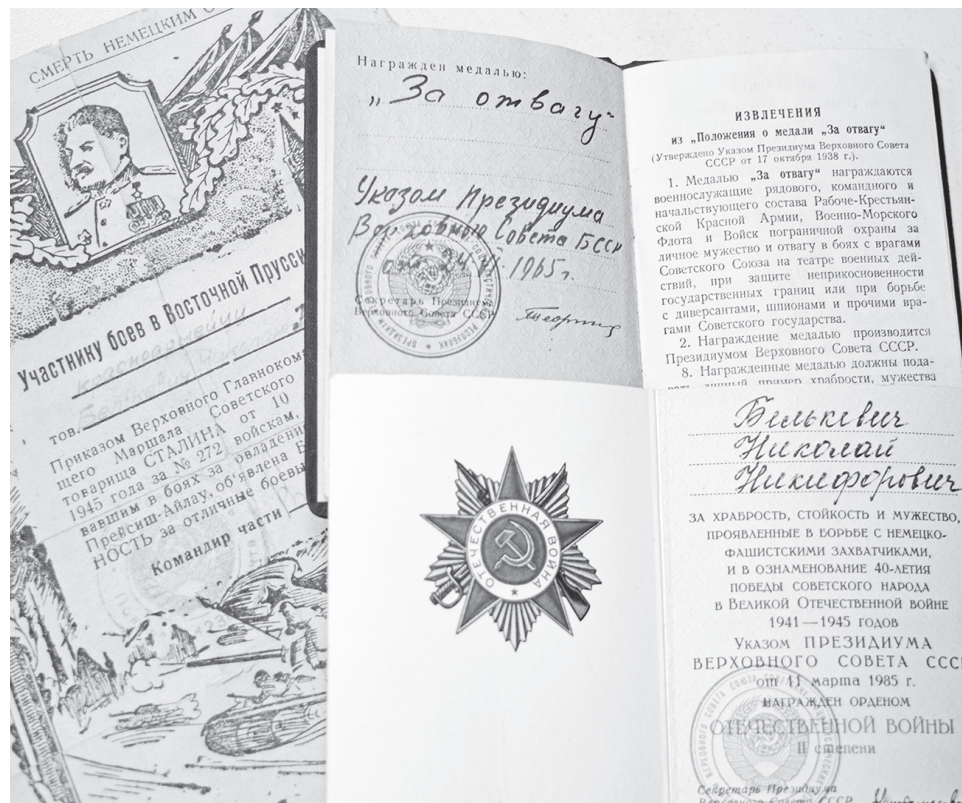 СМЕРТЬ НЕМЕЦКИМ
Участнику боев в Восточной Прусси
красноармейцу
тов.
Приказом Верховного Главнокома
щего Маршала Советского
товарища СТАЛИНА от 10
1945 года за № 272 войскам,
вавшим в боях за овладени
Прейсиш-Айлау, об'явлена Б
НОСТЬ за отличные боевы
Командир части
Награжден медалью:
„За отвагу“
Указом Президиума
Верховного Совета БССР
1965 г.
Секретарь Президиума
Верховного Совета СССР
ИЗВЛЕЧЕНИЯ
из „Положения о медали „За отвагу“
(Утверждено Указом Президиума Верховного Совета
СССР от 17 октября 1938 г.).
1. Медалью „За отвагу“ награждаются
военнослужащие рядового, командного и
начальствующего состава Рабоче-Крестьян-
ской Красной Армии, Военно-Морского
Флота и Войск пограничной охраны за
личное мужество и отвагу в боях с врагами
Советского Союза на театре военных дей-
ствий, при защите неприкосновенности
государственных границ или при борьбе
с диверсантами, шпионами и прочими вра-
гами Советского государства.
2. Награждение медалью производится
Президиумом Верховного Совета СССР.
8. Награжденные медалью должны пода-
вать личный пример храбрости, мужества
ОТЕЧЕСТВЕННАЯ ВОЙНА
Белькевич
Николай
Никифорович
ЗА ХРАБРОСТЬ, СТОЙКОСТЬ И МУЖЕСТВО,
ПРОЯВЛЕННЫЕ В БОРЬБЕ С НЕМЕЦКО-
ФАШИСТСКИМИ ЗАХВАТЧИКАМИ,
И В ОЗНАМЕНОВАНИЕ 40-ЛЕТИЯ
ПОБЕДЫ СОВЕТСКОГО НАРОДА
В ВЕЛИКОЙ ОТЕЧЕСТВЕННОЙ ВОЙНЕ
1941—1945 ГОДОВ
УКАЗОМ ПРЕЗИДИУМА
ВЕРХОВНОГО СОВЕТА ССС
от 11 марта 1985 г.
НАГРАЖДЕН ОРДЕНОМ
ОТЕЧЕСТВЕННОЙ ВОЙНЫ
II степени
Секретарь Президиума
Верховного Совета СССР